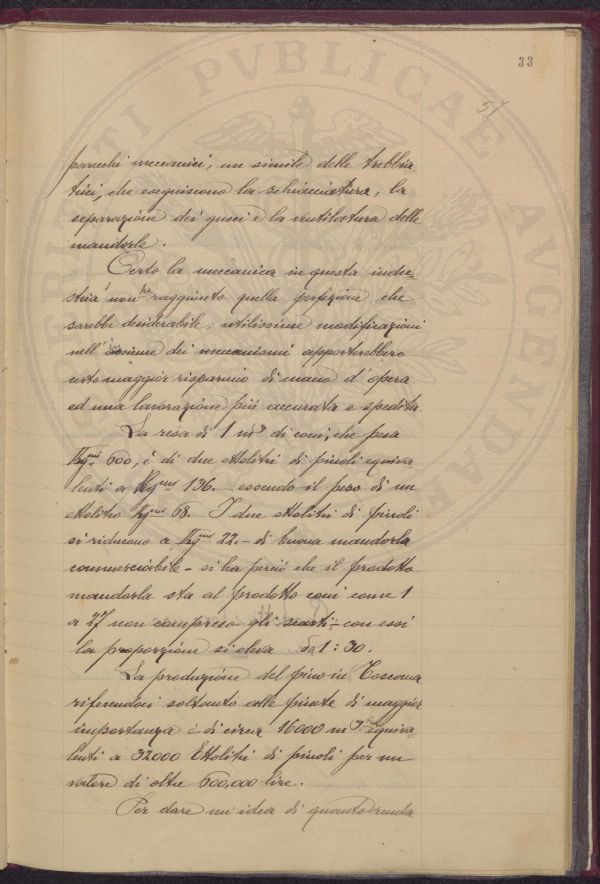 33
57
parecchi meccanici, un simile delle trebbia
trici, che eseguiscono la schiacciatura, la
separazione dei gusci e la ventilatura delle
mandorle.
Certo la meccanica in questa indu-
stria non ha raggiunto quella perfezione che
sarebbe desiderabile, utilissime modificazioni
nell'insieme dei meccanismi apporterebbero
certo maggior risparmio di mano d'opera
ed una lavorazione più accurata e spedita.
La resa di 1 m3 di coni, che pesa
Kgmi 600, è di due ettolitri di pinoli equiva
lenti a Kgmi 136. essendo il peso di un
ettolitro Kgmi 68. I due ettolitri di pinoli
si riducono a Kgmi 22. - di buona mandorla
commerciabile - si ha perciò che il prodotto
mandorla sta al prodotto coni come 1
a 27 non compreso gli scarti - con essi
la proporzione si eleva da 1 : 30.
La produzione del pino in Toscana
riferendoci soltanto alle pinete di maggior
importanza è di circa 16000 m3 equiva
lenti a 32000 Ettolitri di pinoli per un
valore di oltre 600,000 lire.
Per dare un'idea di quanto renda
PERITI PVBLICAE AVGENDAE